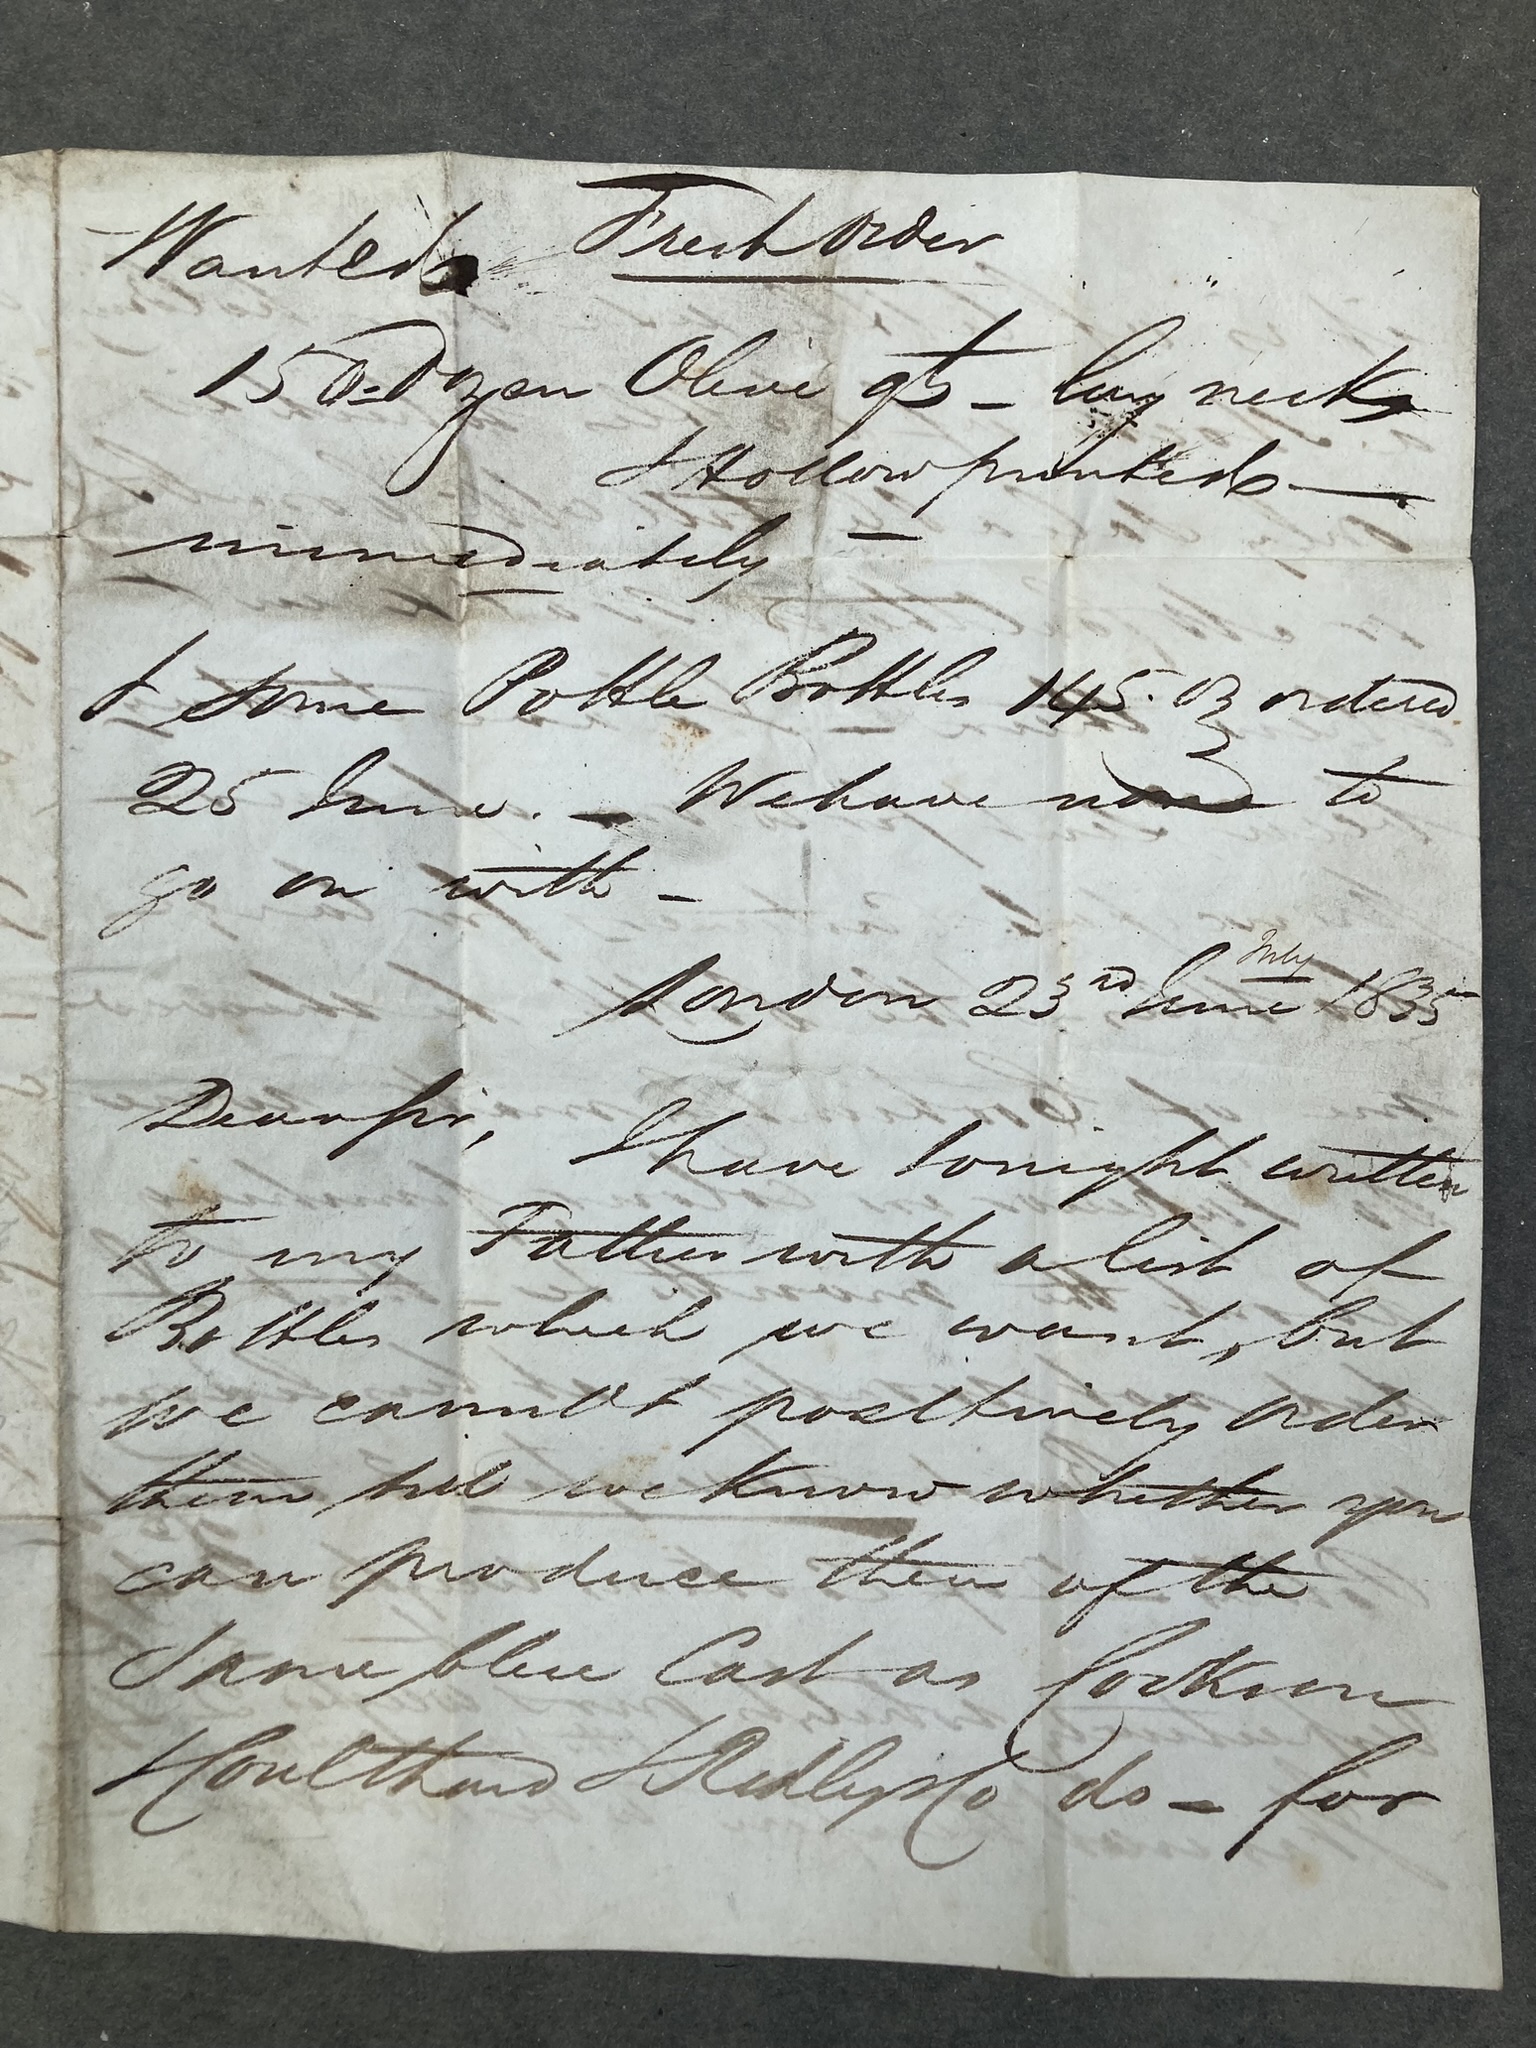 Wanted Fresh Order
150 Dozen Olive qts - long necks
& Hollow punted -
immediately -
& some Pottle Bottles 145 oz ordered
25 June. - We have none to
go on with -
London 23rd June July 1835
Dear Sir, I have tonight written
to my Father with a list of
Bottles which we want, but
we cannot positively order
them till we know whether you
can produce them of the
Same blue Cast as Cookson
& Coulthard & Ridley & Co do - for